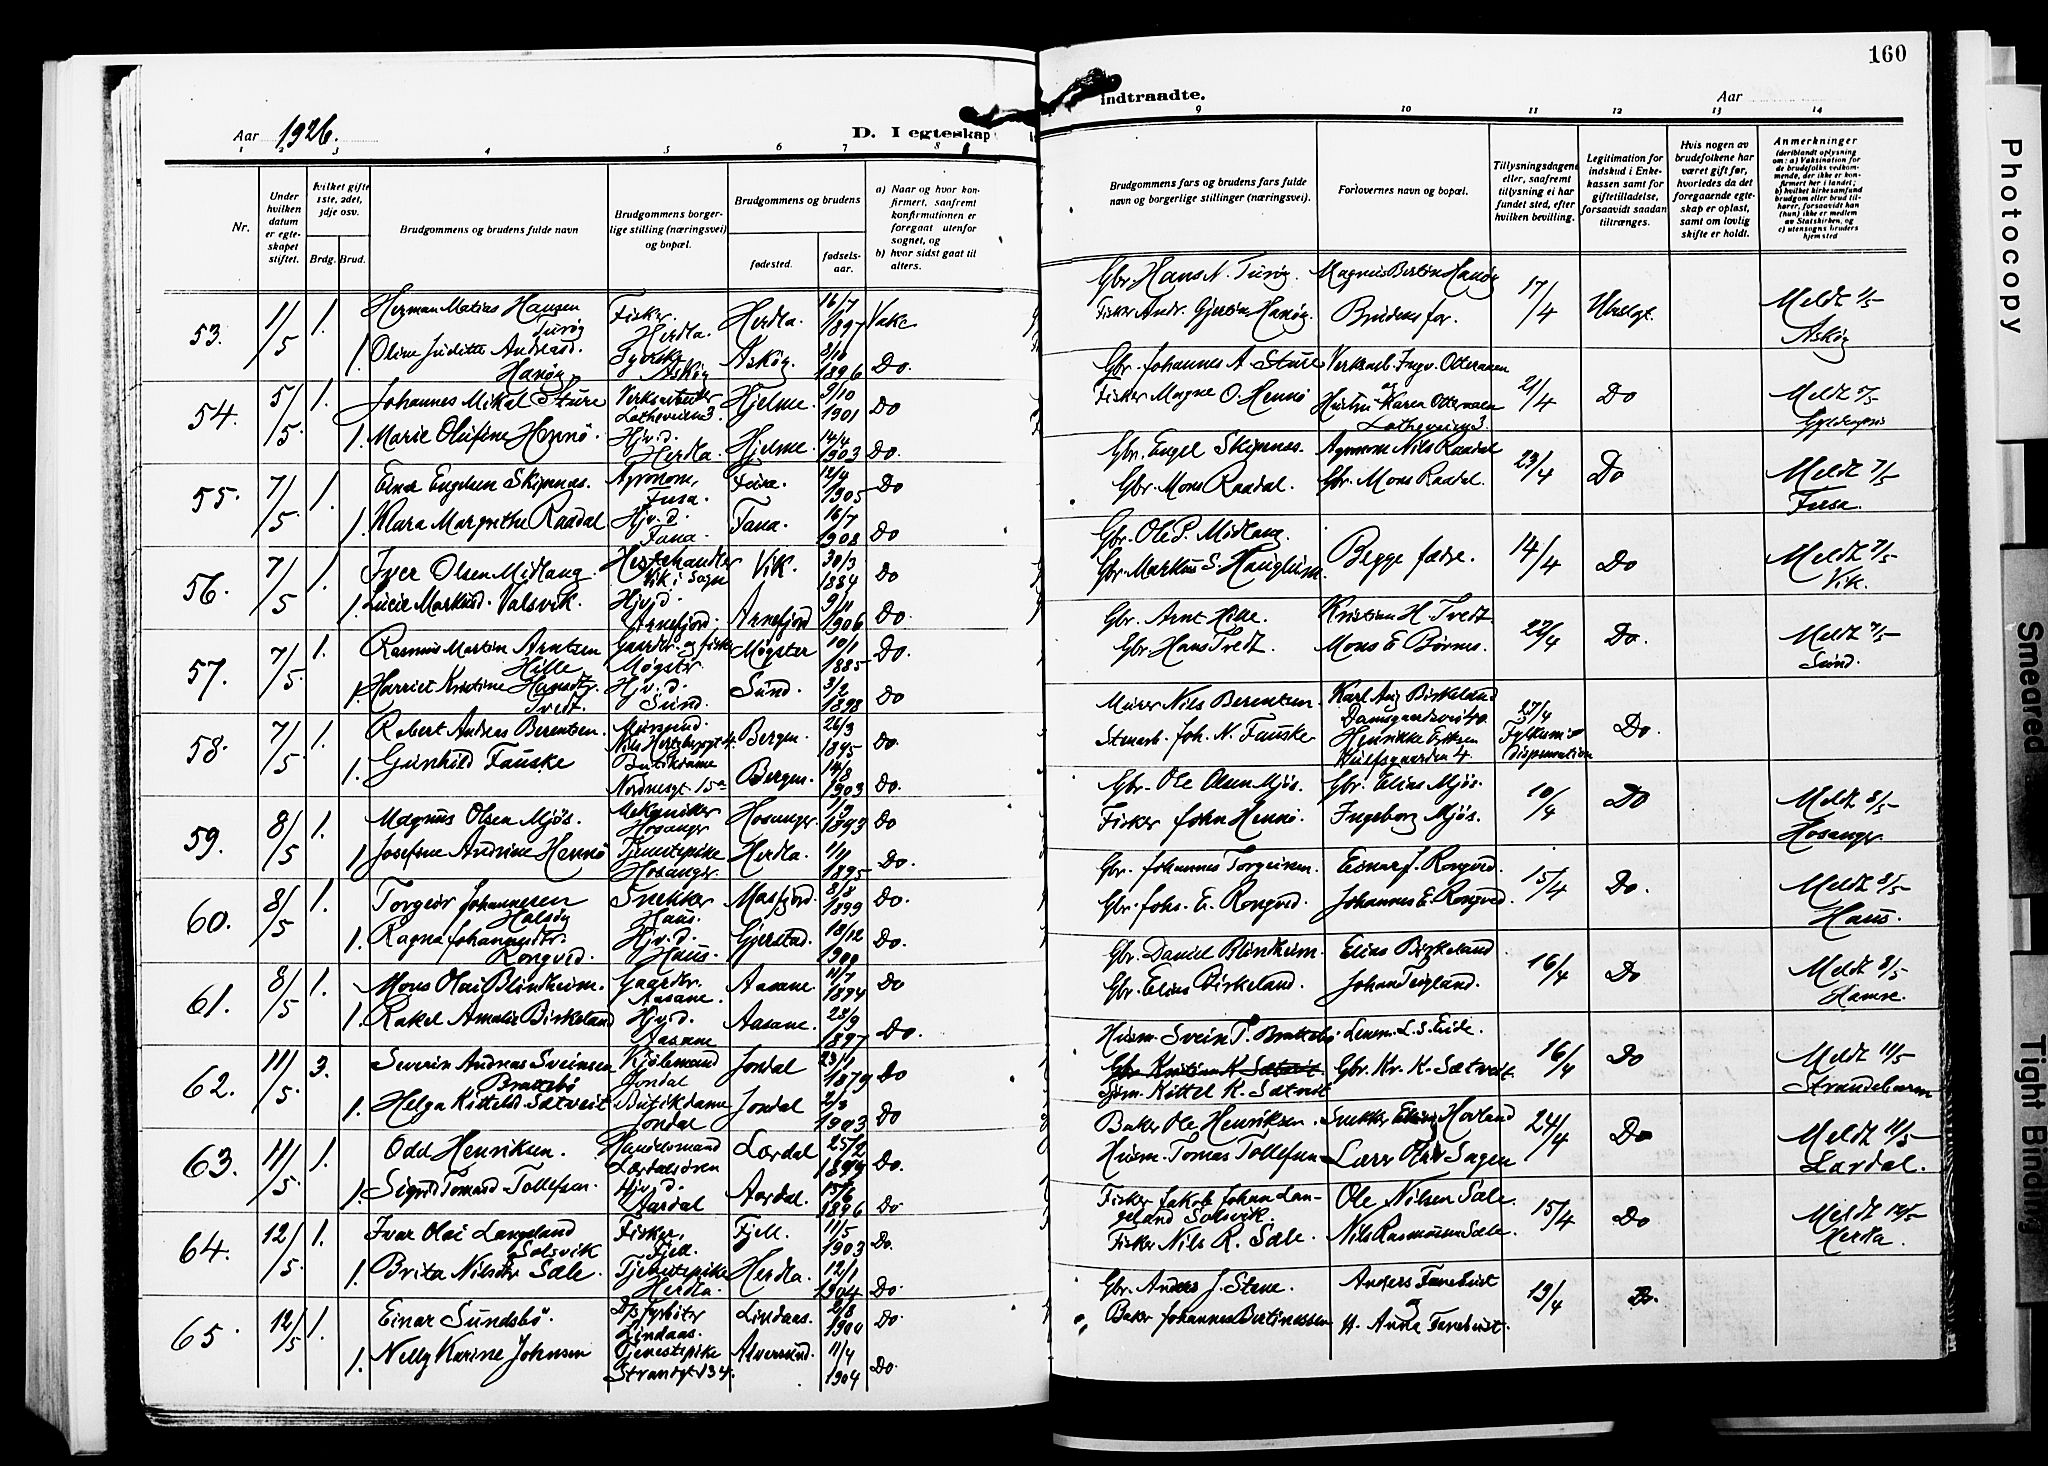 160
Aar 1926.
D. I egteskap
indtraadte.
Aar
1 2 3 4 5 6 7 8
9 10 11 12 13 14
Nr.
Under hvilken datum er egteskapet stiftet.
hvilket gifte 1ste, 2det, 3dje osv.
Brdg. Brud.
Brudgommens og brudens fulde navn
Brudgommens borgerlige stilling (næringsvei) og bopæl.
Brudgommens og brudens
fødested. fødselsaar.
a) Naar og hvor konfirmert, saafremt konfirmationen er foregaat utenfor sognet, og
b) hvor sidst gaat til alters.
Brudgommens fars og brudens fars fulde navn og borgerlige stillinger (næringsvei).
Forlovernes navn og bopæl.
Tillysningsdagene eller, saafremt tillysning ei har fundet sted, efter hvilken bevilling.
Legitimation for indskud i Enkekassen samt for giftetilladelse, forsaavidt saadan tiltrænges.
Hvis nogen av brudefolkene har været gift før, hvorledes da det foregaaende egteskap er opløst, samt om lovlig skifte er holdt.
Anmerkninger
(deriblandt oplysning om: a) Vaksination for de brudefolks vedkommende, der ikke er konfirmert her i landet; b) hvilket kirkesamfund brudgom eller brud tilhører, forsaavidt han (hun) ikke er medlem av Statskirken, og c) utensogns bruders hjemsted
53. 1/5 1. Herman Matias Hansen Turøy Fisker. Herdla. Herdla. 16/7 1897
1. Oline Juditte Andreasd. Hanøy Askøy Askøy. 8/10 1896 Do.
Gbr. Hans N. Turøy. Magnus Bertin Hanøy 17/4
Fisker Andr. Gjertin Hanøy. Brudens far. Meldt 1/5 Askøy
54. 5/5 1. Johannes Mikal Sture Verksarbeider Hjelme. 9/10 1901 Do
1. Marie Olufine Hernø. Hjv. d. Herdla. Hjelme. 14/4 1903 Do.
Gbr. Johannes A. Sture Verksarb. Ingv. Ottersen 21/4 Do Meldt 5/5
Fisker Magne O. Hennø Hustru Karen Ottersen
55. 7/5 1. Einar Engelsen Skipenas. Agronom, Fusa. Fusa. 12/9 1905 Do
1. Klara Margrethe Raadal Hjv. d. Fana. Fana. 16/7 1908 Do
Gbr. Engel Skipenas. Agronom Nils Raadal 23/4 Do Meldt 7/5 Fusa.
Gbr. Mons Raadal. Gbr. Mons Raadal.
56. 7/5 1. Iver Olsen Midlang. Hestehandler Vik i Sogn Vik. 30/3 1884 Do
1. Lucie Markusd. Valsvik. Hjv. d. Arnefjord. Arnefjord 9/11 1906 Do
Gbr. Ole P. Midlang. Begge fædre. 14/4 Do Meldt 7/5 Vik.
Gbr. Markus S. Hauglum.
57. 7/5 1. Rasmus Martin Arntsen Hille Gaardbr. og fisker Møgster Møgster 10/1 1885 Do.
1. Harriet Kristine Hansdtr. Tvedt. Hjv. d. Sund. Sund. 3/2 1898 Do
Gbr. Arnt Hille. Kristian H. Tvedt 27/4 Do. Meldt 7/5 Sund.
Gbr Hans Tvedt. Mons E. Børnes.
58. 7/5 1. Robert Andreas Berentsen. Mursvend. Nils Hertzbergsgt 4. Bergen. 26/3 1895 Do.
1. Gunhild Fauske Butikdame Nordnesgt. 15a Bergen. 14/8 1903 Do.
Murer Nils Berentsen. Karl Aug. Birkeland Damsgaardsvei 40 27/4 Do.
Stenarb. Joh. N. Fauske Henrikke Eriksen dispensation
59. 8/5 1. Magnus Olsen Mjøs. Mekaniker Hosanger Hosanger 1893 Do
1. Josefine Andrine Hernø Tjenestepike Hosanger Herdla. 1/11 1895 Do.
Gbr. Ole Olsen Mjøs. Gbr. Elias Mjøs. 10/4 Do Meldt 8/5 Hosanger
Fisker John Hennø. Ingeborg Mjøs.
60. 8/5 1. Torgeir Johannesen Halsøy Snekker Haus. Masfjord. 8/8 1899 Do.
1. Ragna Johannesdtr. Rongved. Hjv. d. Haus. Gjerstad. 18/12 1900 Do.
Gbr. Johannes Torgeirsen. Einar J. Rongved. 15/4 Do. Meldt 8/5 Haus.
Gbr. Johs. E. Rongved. Johannes E. Rongved.
61. 8/5 1. Mons Olai Blindheim. Gaardbr. Aasane. Aasane 11/7 1894 Do
1. Rakel Amalie Birkeland Hjv. d. Aasane Aasane. 28/9 1897 Do.
Gbr. Daniel Blindheim. Elias Birkeland 16/4 Do Meldt 8/5 Hamre.
Gbr. Elias Birkeland. Johan Teigland.
62. 11/5 3. Severin Andreas Sveinsen Brattebø Kjøbmand Jondal Jondal 23/1 1879 Do
1. Helga Kittelsd. Sætveit Butikdame Jondal Jondal 2/3 1903 Do
Husm. Svein T. Brattebø. Lensm. L. S. Eide. 16/4 Do Meldt 11/5 Strandebarm
Gbr. Kristian K. Sætveit. Gbr. Kr. K. Sætveit.
Gjm. Kittel K. Sætveit
63. 11/5 1. Odd Henriksen. Handelsmand Lærdalsøren Lærdal 25/2 1899 Do.
1. Sigrid Tomasd Tollefsen. Hjv. d. Aardal Aardal. 15/6 1896 Do
Baker Ole Henriksen. Snekker Hovland 24/4 Do Meldt 11/5 Lærdal.
Husm. Tomas Tollefsen Lærer Olav Sagen
64. 12/5 1. Ivar Olai Langeland Solsvik Fisker, Fjell. Fjell. 11/5 1903 Do.
1. Brita Nilsdtr Sæle. Tjenestepike Herdla. Herdla. 12/1 1904 Do
Fisker Jakob Johan Langeland Solsvik. Ole Nilsen Sæle. 15/4 Do Meldt 12/5 Herdla.
Fisker Nils R. Sæle. Nils Rasmussen Sæle.
65. 12/5 1. Einar Sundsbø. Lindaas. Lindaas. 2/8 1900 Do.
1. Nelly Karine Johnsen Tjenestepike Strandgt 134. Alversund. 11/4 1904 Do.
Gbr. Anders J. Stene. Anders Tanekvist 13/4 Do.
Baker Johannes Bertinussen H. Anna Tanekvist.
Photocopy
Smeared
Tight Binding